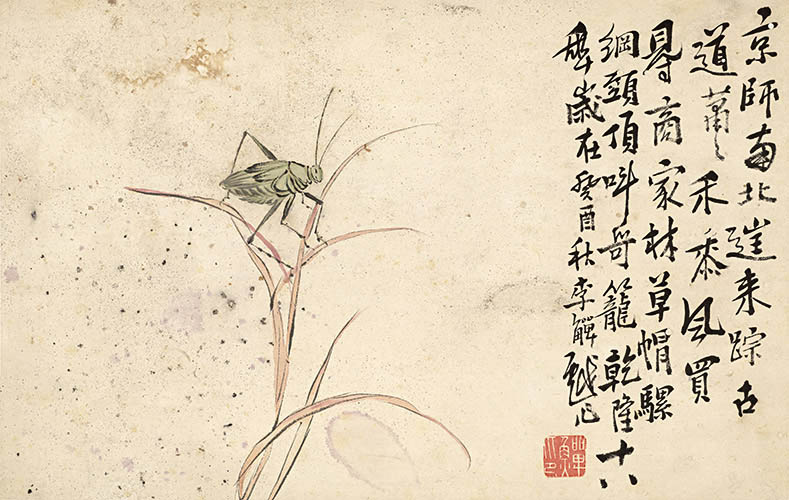 京師南北遞来踪古
道蕭々禾黍風買
得商家林草帽騾
綱頭頂叫哥籠乾隆十八
年歲在癸酉秋李觶戲